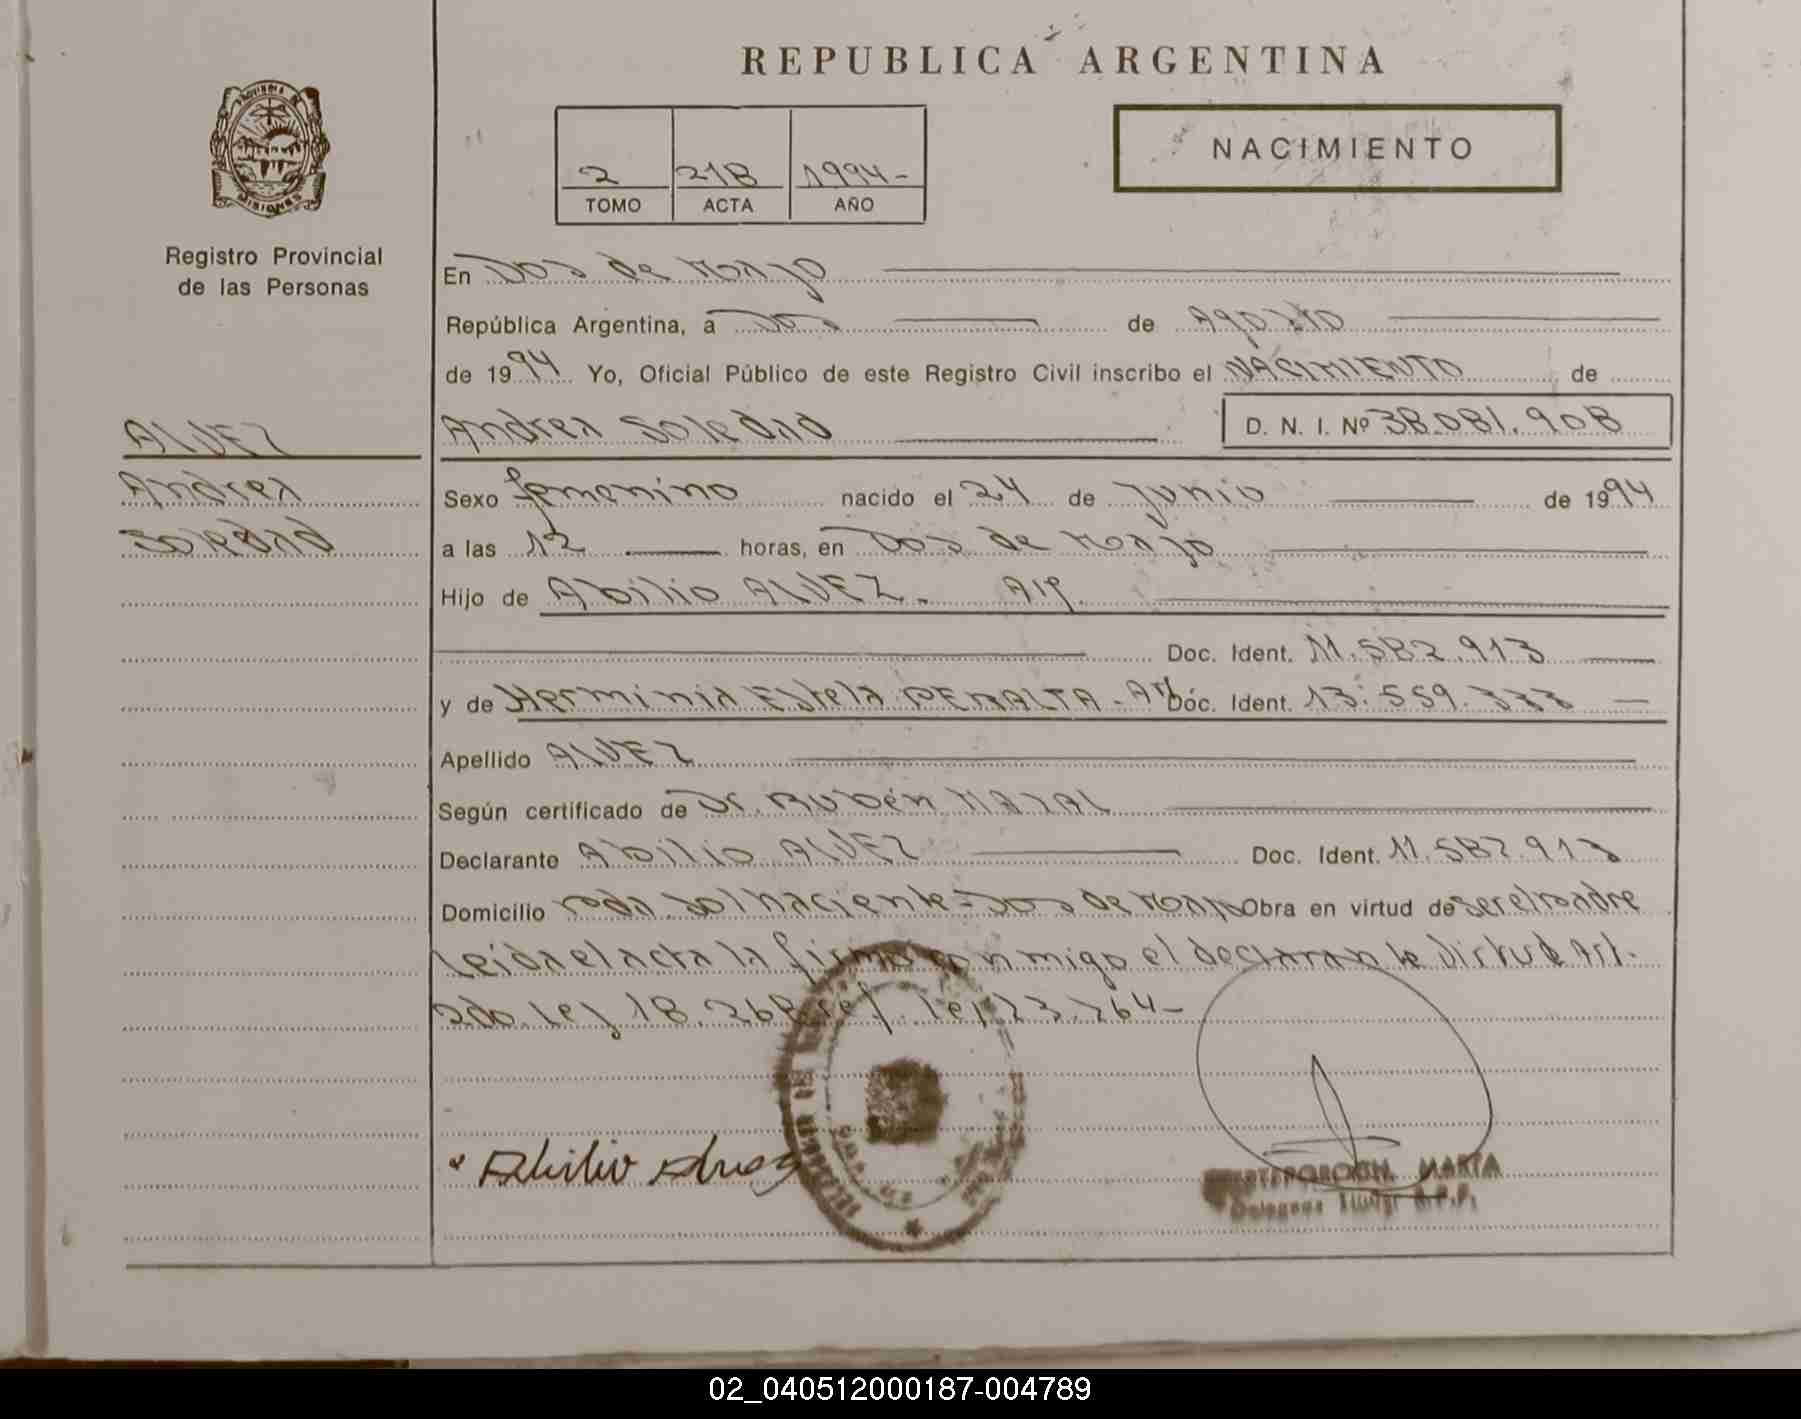 REPUBLICA ARGENTINA
PROVINCIA DE
MISIONES
Registro Provincial
de las Personas
2 218 1994-
TOMO ACTA AÑO
NACIMIENTO
En Dos de Mayo
República Argentina, a Dos de Agosto
de 1994 Yo, Oficial Público de este Registro Civil inscribo el NACIMIENTO de
ALVEZ Andrea Soledad D. N. I. Nº 38.081.908
Andrea Sexo femenino nacido el 24 de Junio de 1994
Soledad a las 12 horas, en Dos de Mayo
Hijo de Abilio ALVEZ. Arg.
Doc. Ident. 11.582.913
y de Herminia Estela PERALTA - Arg. Doc. Ident. 13.559.333
Apellido ALVEZ
Según certificado de Dr. Rubén
Declarante Abilio ALVEZ Doc. Ident. 11.582.913
Domicilio Sol naciente - Dos de Mayo Obra en virtud de ser el padre
Leída el acta la firma conmigo el declarante Art.
2do. Ley 18. ref. Ley 23.264-
Abilio Alvez
MARTA